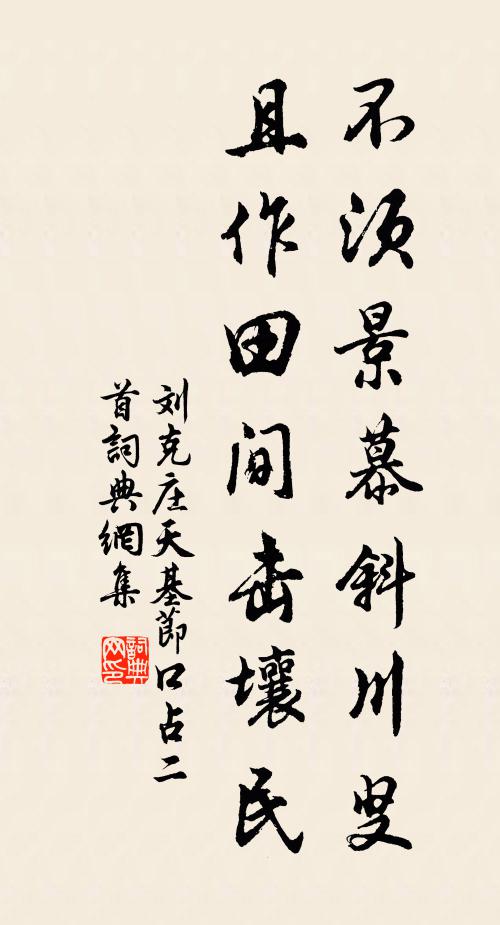 不須景慕斜川叟
且作田間击壤民
刘克庄天基節口占二
首詞典網集
詞典
网印